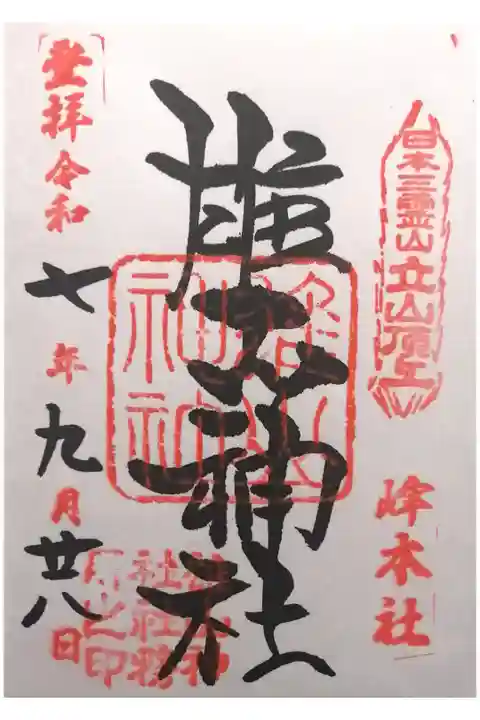 日本三霊山立山頂上
峰本社
雄山神社
雄山神社
登拝令和七年九月廿八日